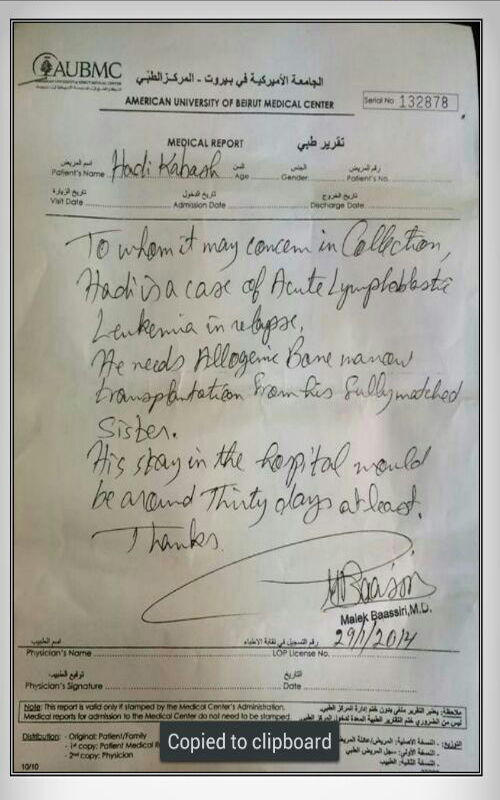 AUBMC
الجامعة الأميركية في بيروت - المركز الطبي
AMERICAN UNIVERSITY OF BEIRUT MEDICAL CENTER
Serial No 132878
MEDICAL REPORT تقرير طبي
اسم المريض السن الجنس رقم المريض
Patient's Name Hadi Kabash Age Gender Patient's No.
تاريخ الزيارة تاريخ الدخول تاريخ الخروج
Visit Date Admission Date Discharge Date
To whom it may concern in Collection,
Hadi is a case of Acute Lymphoblastic
Leukemia in relapse.
He needs Allogenic Bone marrow
transplantation from his fully matched
Sister.
His stay in the hospital would
be around Thirty days at least.
Thanks.
Malek Baassiri, M.D.
29/1/2014
اسم الطبيب رقم التسجيل في نقابة الاطباء
Physician's Name LOP License No.
توقيع الطبيب التاريخ
Physician's Signature Date
Note: This report is valid only if stamped by the Medical Center's Administration.
Medical reports for admission to the Medical Center do not need to be stamped.
ملاحظة: يعتبر التقرير ملغى بدون ختم إدارة المركز الطبي.
ليس من الضروري ختم التقارير الطبية المعدة لدخول المركز الطبي
Distribution: - Original: Patient/Family
- 1st copy: Patient Medical
- 2nd copy: Physician
التوزيع: - النسخة الأصلية: المريض/عائلة
- النسخة الأولى: سجل المريض الطبي
- النسخة الثانية: الطبيب
10/10
Copied to clipboard